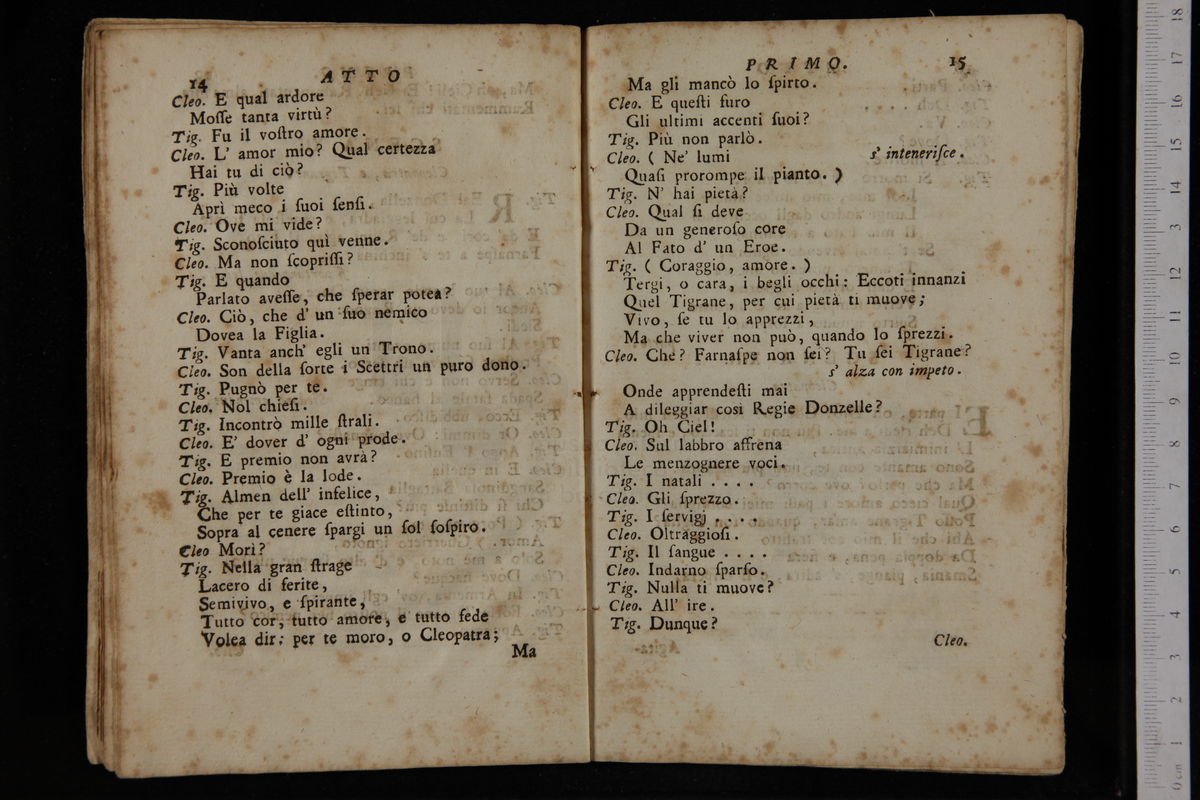 14
ATTO
Cleo. E qual ardore
Moſſe tanta virtù?
Tig. Fu il voſtro amore.
Cleo. L' amor mio? Qual certezza
Hai tu di ciò?
Tig. Più volte
Aprì meco i ſuoi ſenſi.
Cleo. Ove mi vide?
Tig. Sconoſciuto quì venne.
Cleo. Ma non ſcopriſſi?
Tig. E quando
Parlato aveſſe, che ſperar potea?
Cleo. Ciò, che d' un ſuo nemico
Dovea la Figlia.
Tig. Vanta anch' egli un Trono.
Cleo. Son della ſorte i Scettri un puro dono.
Tig. Pugnò per te.
Cleo. Nol chieſi.
Tig. Incontrò mille ſtrali.
Cleo. E' dover d' ogni prode.
Tig. E premio non avrà?
Cleo. Premio è la lode.
Tig. Almen dell' infelice,
Che per te giace eſtinto,
Sopra al cenere ſpargi un ſol ſoſpiro.
Cleo Morì?
Tig. Nella gran ſtrage
Lacero di ferite,
Semivivo, e ſpirante,
Tutto cor, tutto amore, e tutto fede
Volea dir: per te moro, o Cleopatra;
Ma
PRIMO.
15
Ma gli mancò lo ſpirto.
Cleo. E queſti furo
Gli ultimi accenti ſuoi?
Tig. Più non parlò.
Cleo. ( Ne' lumi s' inteneriſce.
Quaſi prorompe il pianto. )
Tig. N' hai pietà?
Cleo. Qual ſi deve
Da un generoſo core
Al Fato d' un Eroe.
Tig. ( Coraggio, amore. )
Tergi, o cara, i begli occhi: Eccoti innanzi
Quel Tigrane, per cui pietà ti muove;
Vivo, ſe tu lo apprezzi,
Ma che viver non può, quando lo ſprezzi.
Cleo. Che? Farnaſpe non ſei? Tu ſei Tigrane?
s' alza con impeto.
Onde apprendeſti mai
A dileggiar così Regie Donzelle?
Tig. Oh Ciel!
Cleo. Sul labbro affrena
Le menzognere voci.
Tig. I natali . . . .
Cleo. Gli ſprezzo.
Tig. I ſervigj . . . .
Cleo. Oltraggioſi.
Tig. Il ſangue . . . .
Cleo. Indarno ſparſo.
Tig. Nulla ti muove?
Cleo. All' ire.
Tig. Dunque?
Cleo.